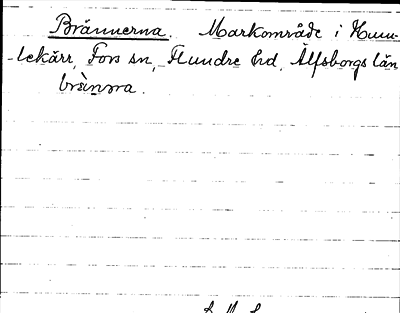 Brännerna. Markområde i Hum-
-lekärr, Fors sn, Flundre hd, Älfsborgs län
brànna.